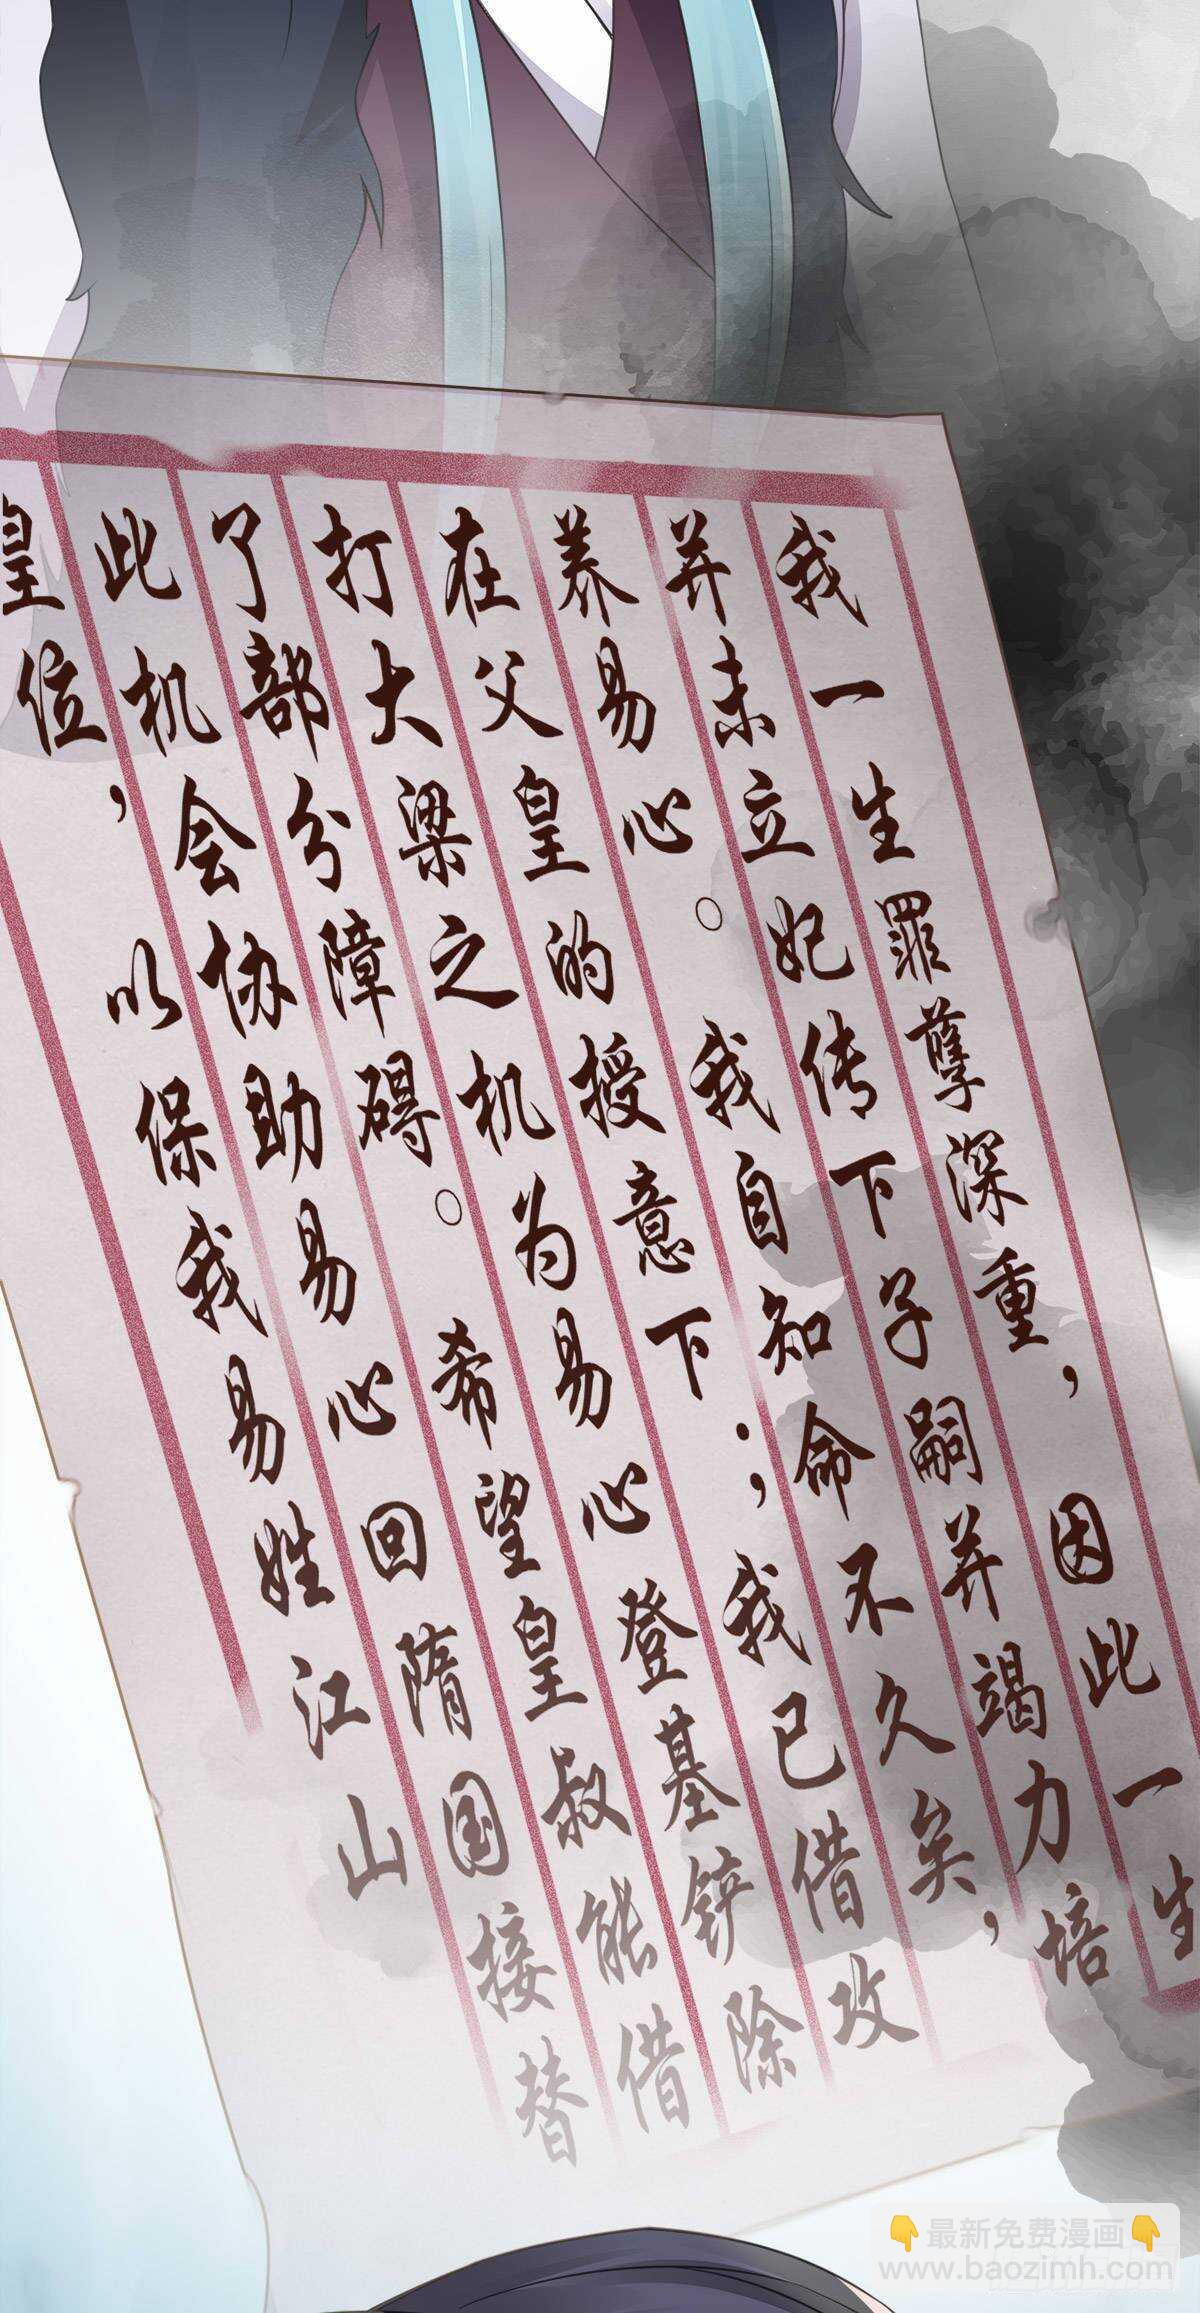 我一生罪孽深重，因此一生
并未立妃传下子嗣并竭力培
养易心。我自知命不久矣，
在父皇的授意下；我已借攻
打大梁之机为易心登基铲除
了部分障碍。希望皇叔能借
此机会协助易心回隋国接替
皇位，以保我易姓江山
👇最新免费漫画👇
www.baozimh.com